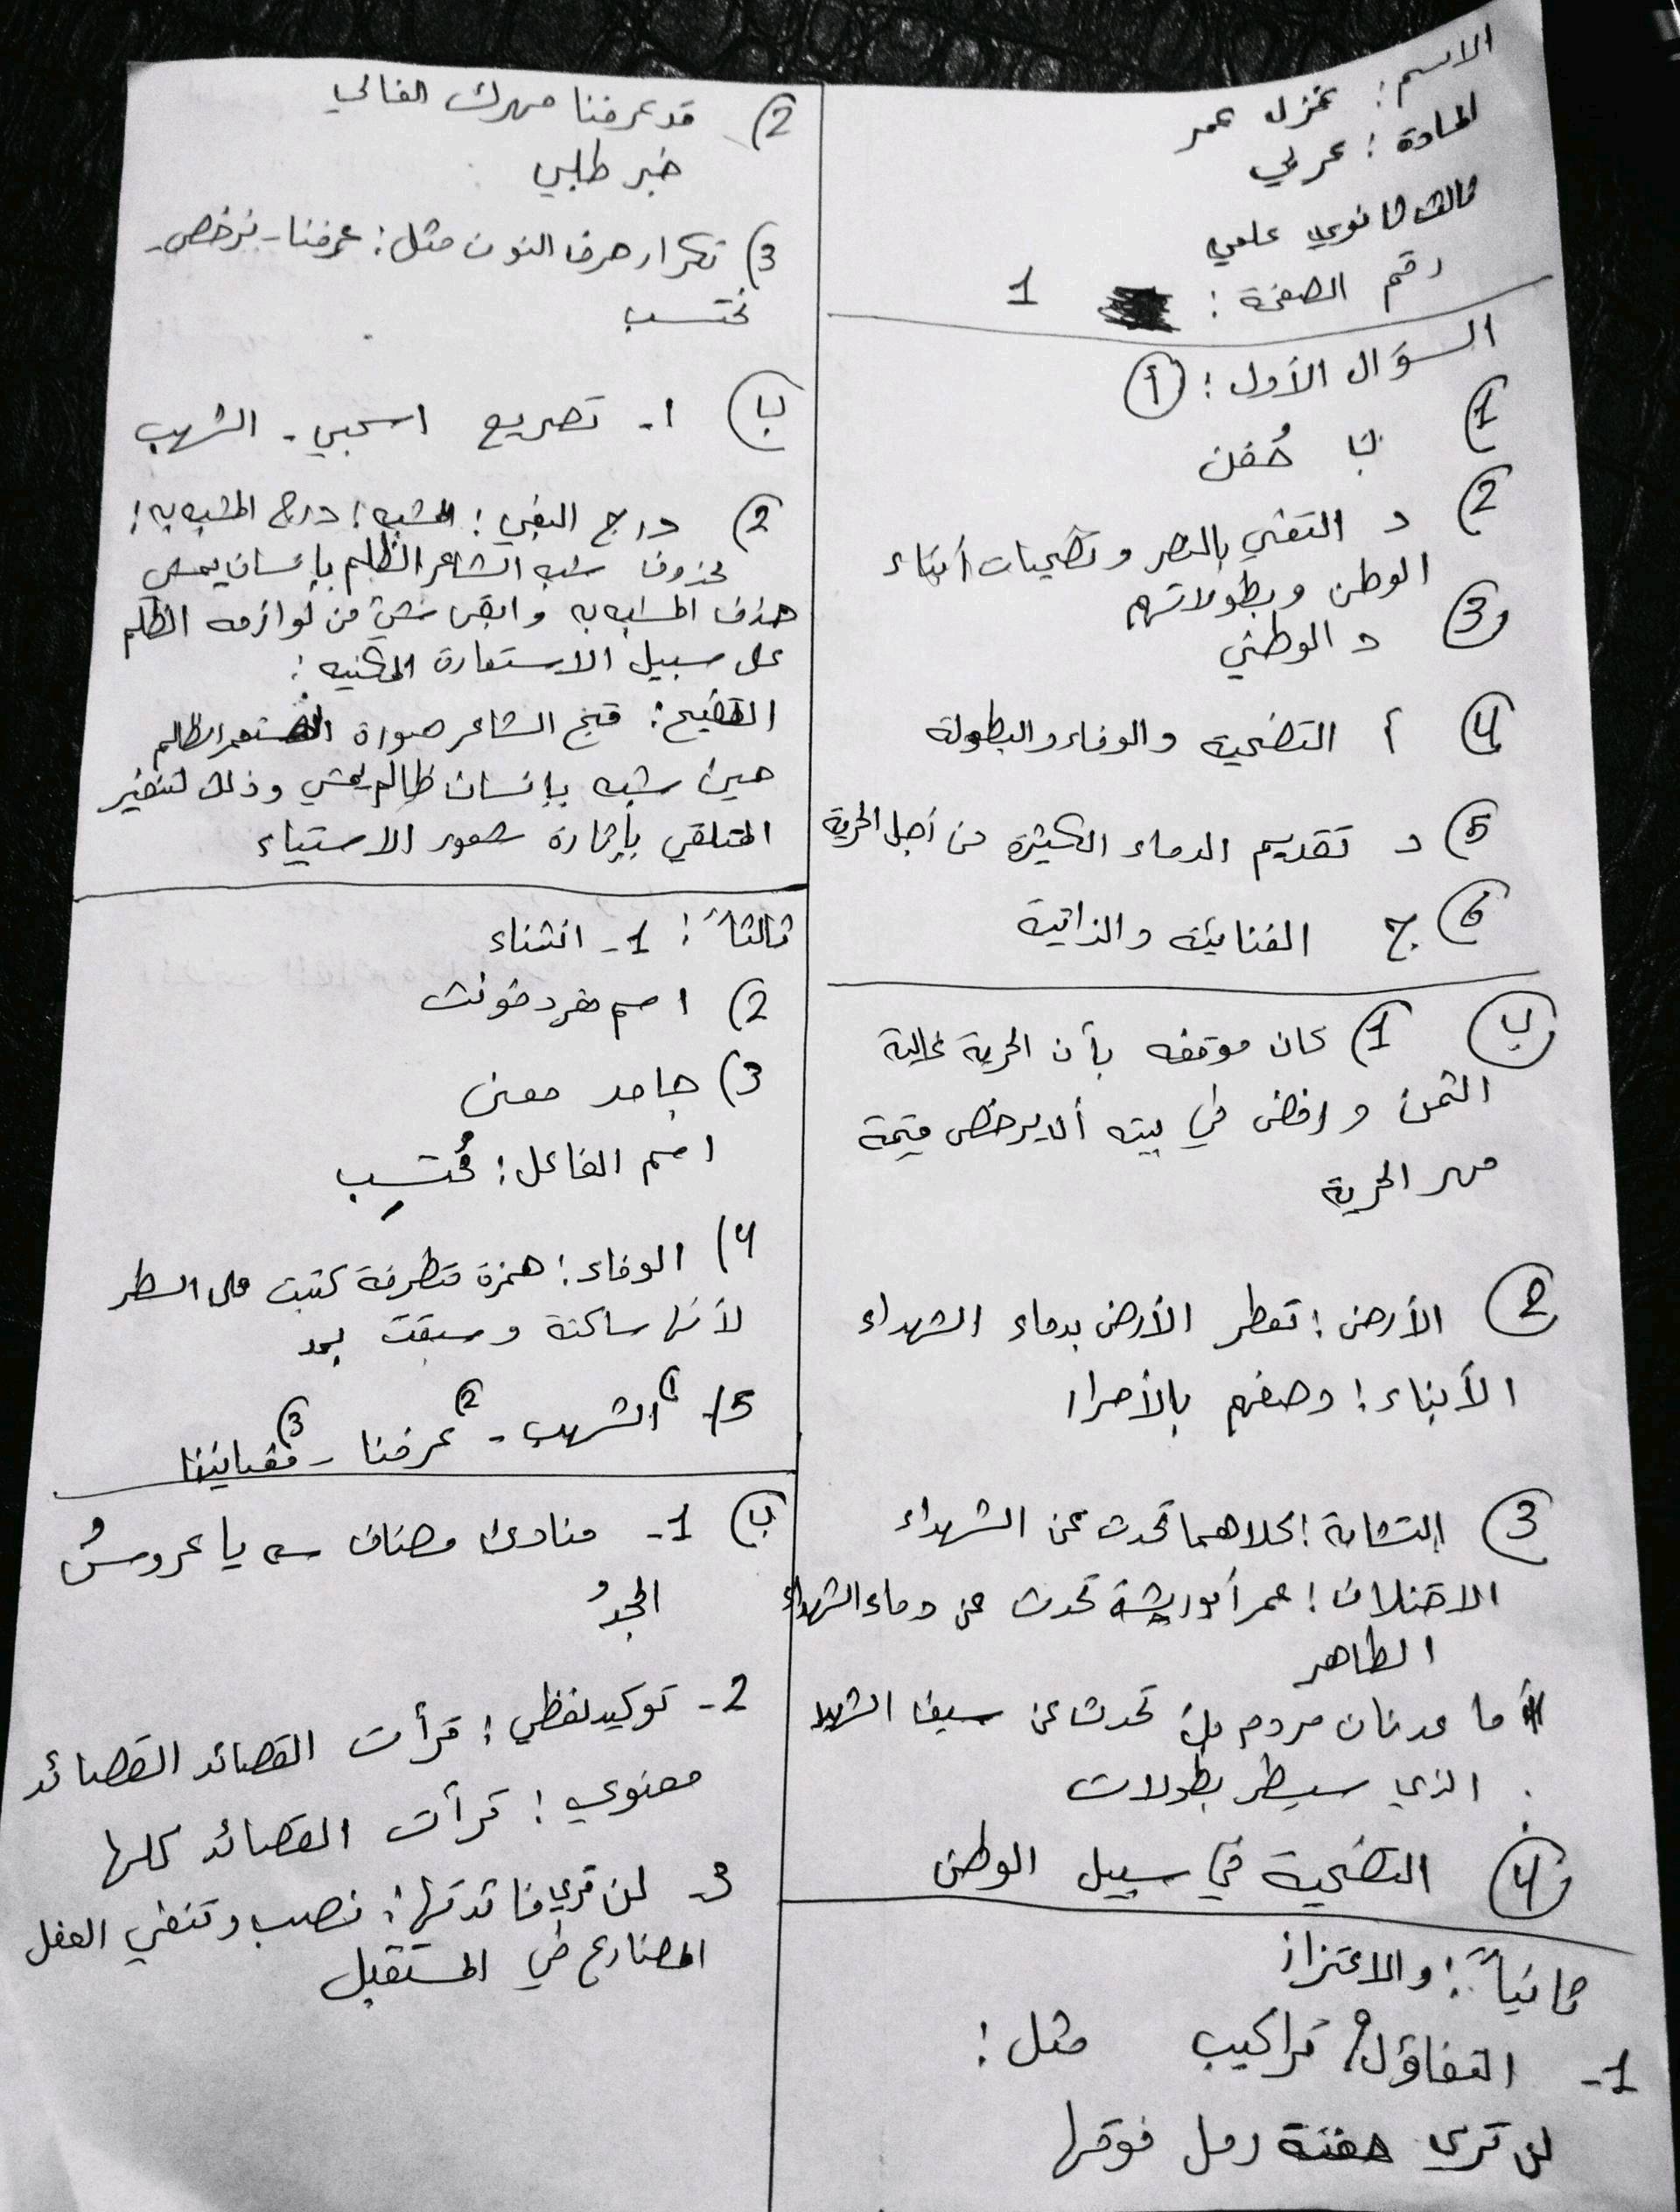 الاسم: غزل عمر
المادة: عربي
ثالث ثانوي علمي
رقم الصفحة: 1
السؤال الأول: أ
1) ب حُفن
2) د التغني بالنصر وتضحيات أبناء
الوطن وبطولاتهم
3) د الوطني
4) أ التضحية والوفاء والبطولة
5) د تقديم الدماء الكثيرة من أجل الحرية
6) ج الغنائية والذاتية
ب) 1) كان موقفه بأن الحرية غالية
الثمن ورفض في بيته ألا يرخص قيمة
مهر الحرية
2) الأرض: تعطر الأرض بدماء الشهداء
الأبناء: وصفهم بالأحرار
3) التشابة: كلاهما تحدث عن الشهداء
الاختلاف: عمر أبو ريشة تحدث عن دماء الشهداء
الطاهر
أما عدنان مردم بك تحدث عن سيف الشهداء
الذي سيطر بطولات
4) التضحية في سبيل الوطن
ثانياً: والاعتزاز
1- التفاؤل تراكيب مثل:
لن تري حفنة رمل فوقها
2) قد عرفنا مهرك الغالي
خبر طلبي
3) تكرار حرف النون مثل: عرفنا - نرخص -
نحتسب
ب) 1- تصريع اسحبي - الشهب
2) درج البغي: المشبه: درج المشبه به:
محذوف شبه الشاعر الظلم بإنسان يمشي
حذف المشبه به وابقى شيئ من لوازمه الظلم
على سبيل الاستعارة المكنيه:
التقبيح: قبح الشاعر صورة المستعمر الظالم
حين شبه بإنسان ظالم يمشي وذلك لتنفير
المتلقي بإثارة شعور الاستياء
ثالثاً: 1- انتشاء
2) اسم مفرد مؤنث
3) جامد معنى
اسم الفاعل: مُحتسِب
4) الوفاء: همزة متطرفة كتبت على السطر
لأنها ساكنة وسبقت بمد
5) الشهب (1) - عرفنا (2) - مغانينا (3)
ب) 1- منادى مضاف يا عروسُ
المجدُ
2- توكيد لفظي: قرأت القصائد القصائد
معنوي: قرأت القصائد كلها
3- لن تري فائدتها: نصب وتنفي الفعل
المضارع في المستقبل